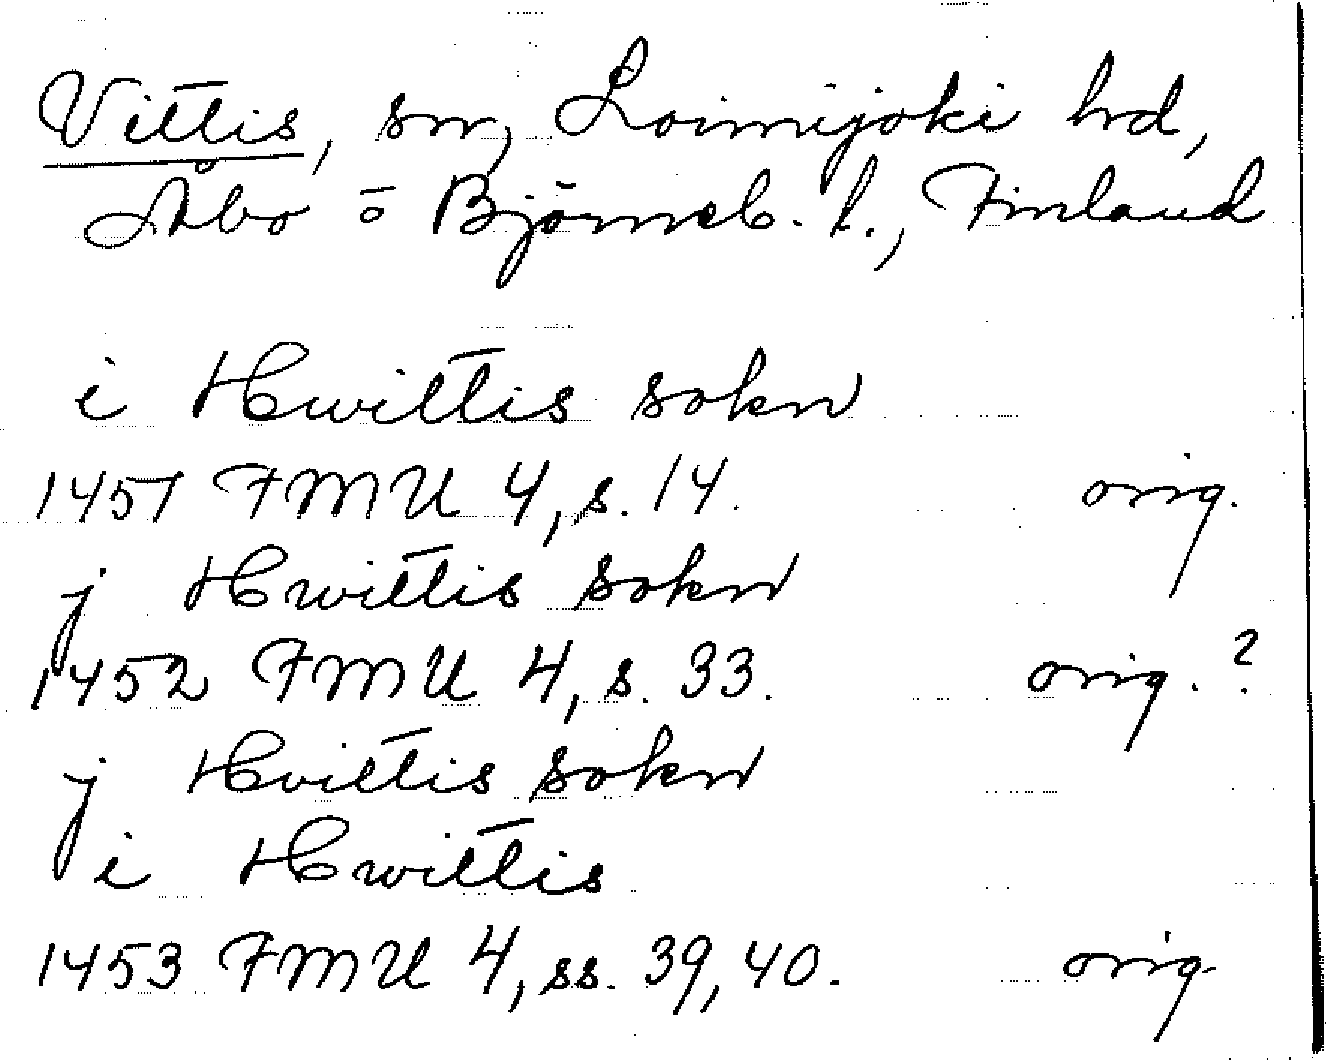 Vittis, sn, Loimijoki hd,
Åbo o Björneb. l., Finland
i Hwittis sokn
1451 FMU 4, s. 14. orig.
j Hwittis sokn
1452 FMU 4, s. 33. orig. ?
j Hvittis sokn
i Hwittis
1453 FMU 4, ss. 39, 40. orig